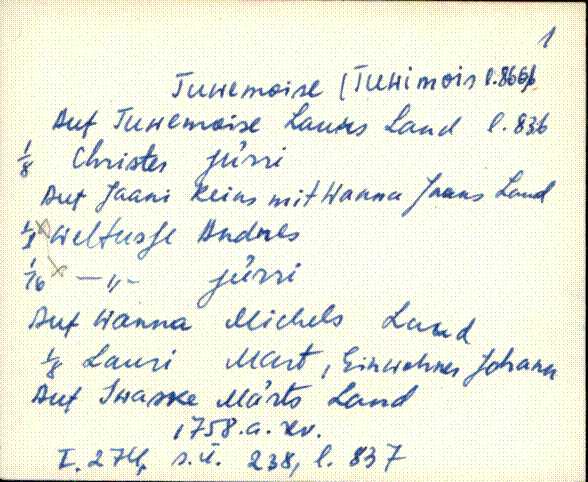 1
Tuwemoise (Tuwimois l. 866p
Auf Tuwemoise Lauris Land l. 836
1/8 Christer Jürri
Auf Jaani Reins mit Wanna Jaans Land
1/8 x Weltusse Andres
1/16 x —„— Jürri
Auf Wanna Michels Land
1/8 Lauri Mart, Einwohner Johann
Auf Iwaske Märts Land
1758.a. rev.
I. 274, s.ü. 238, l. 837